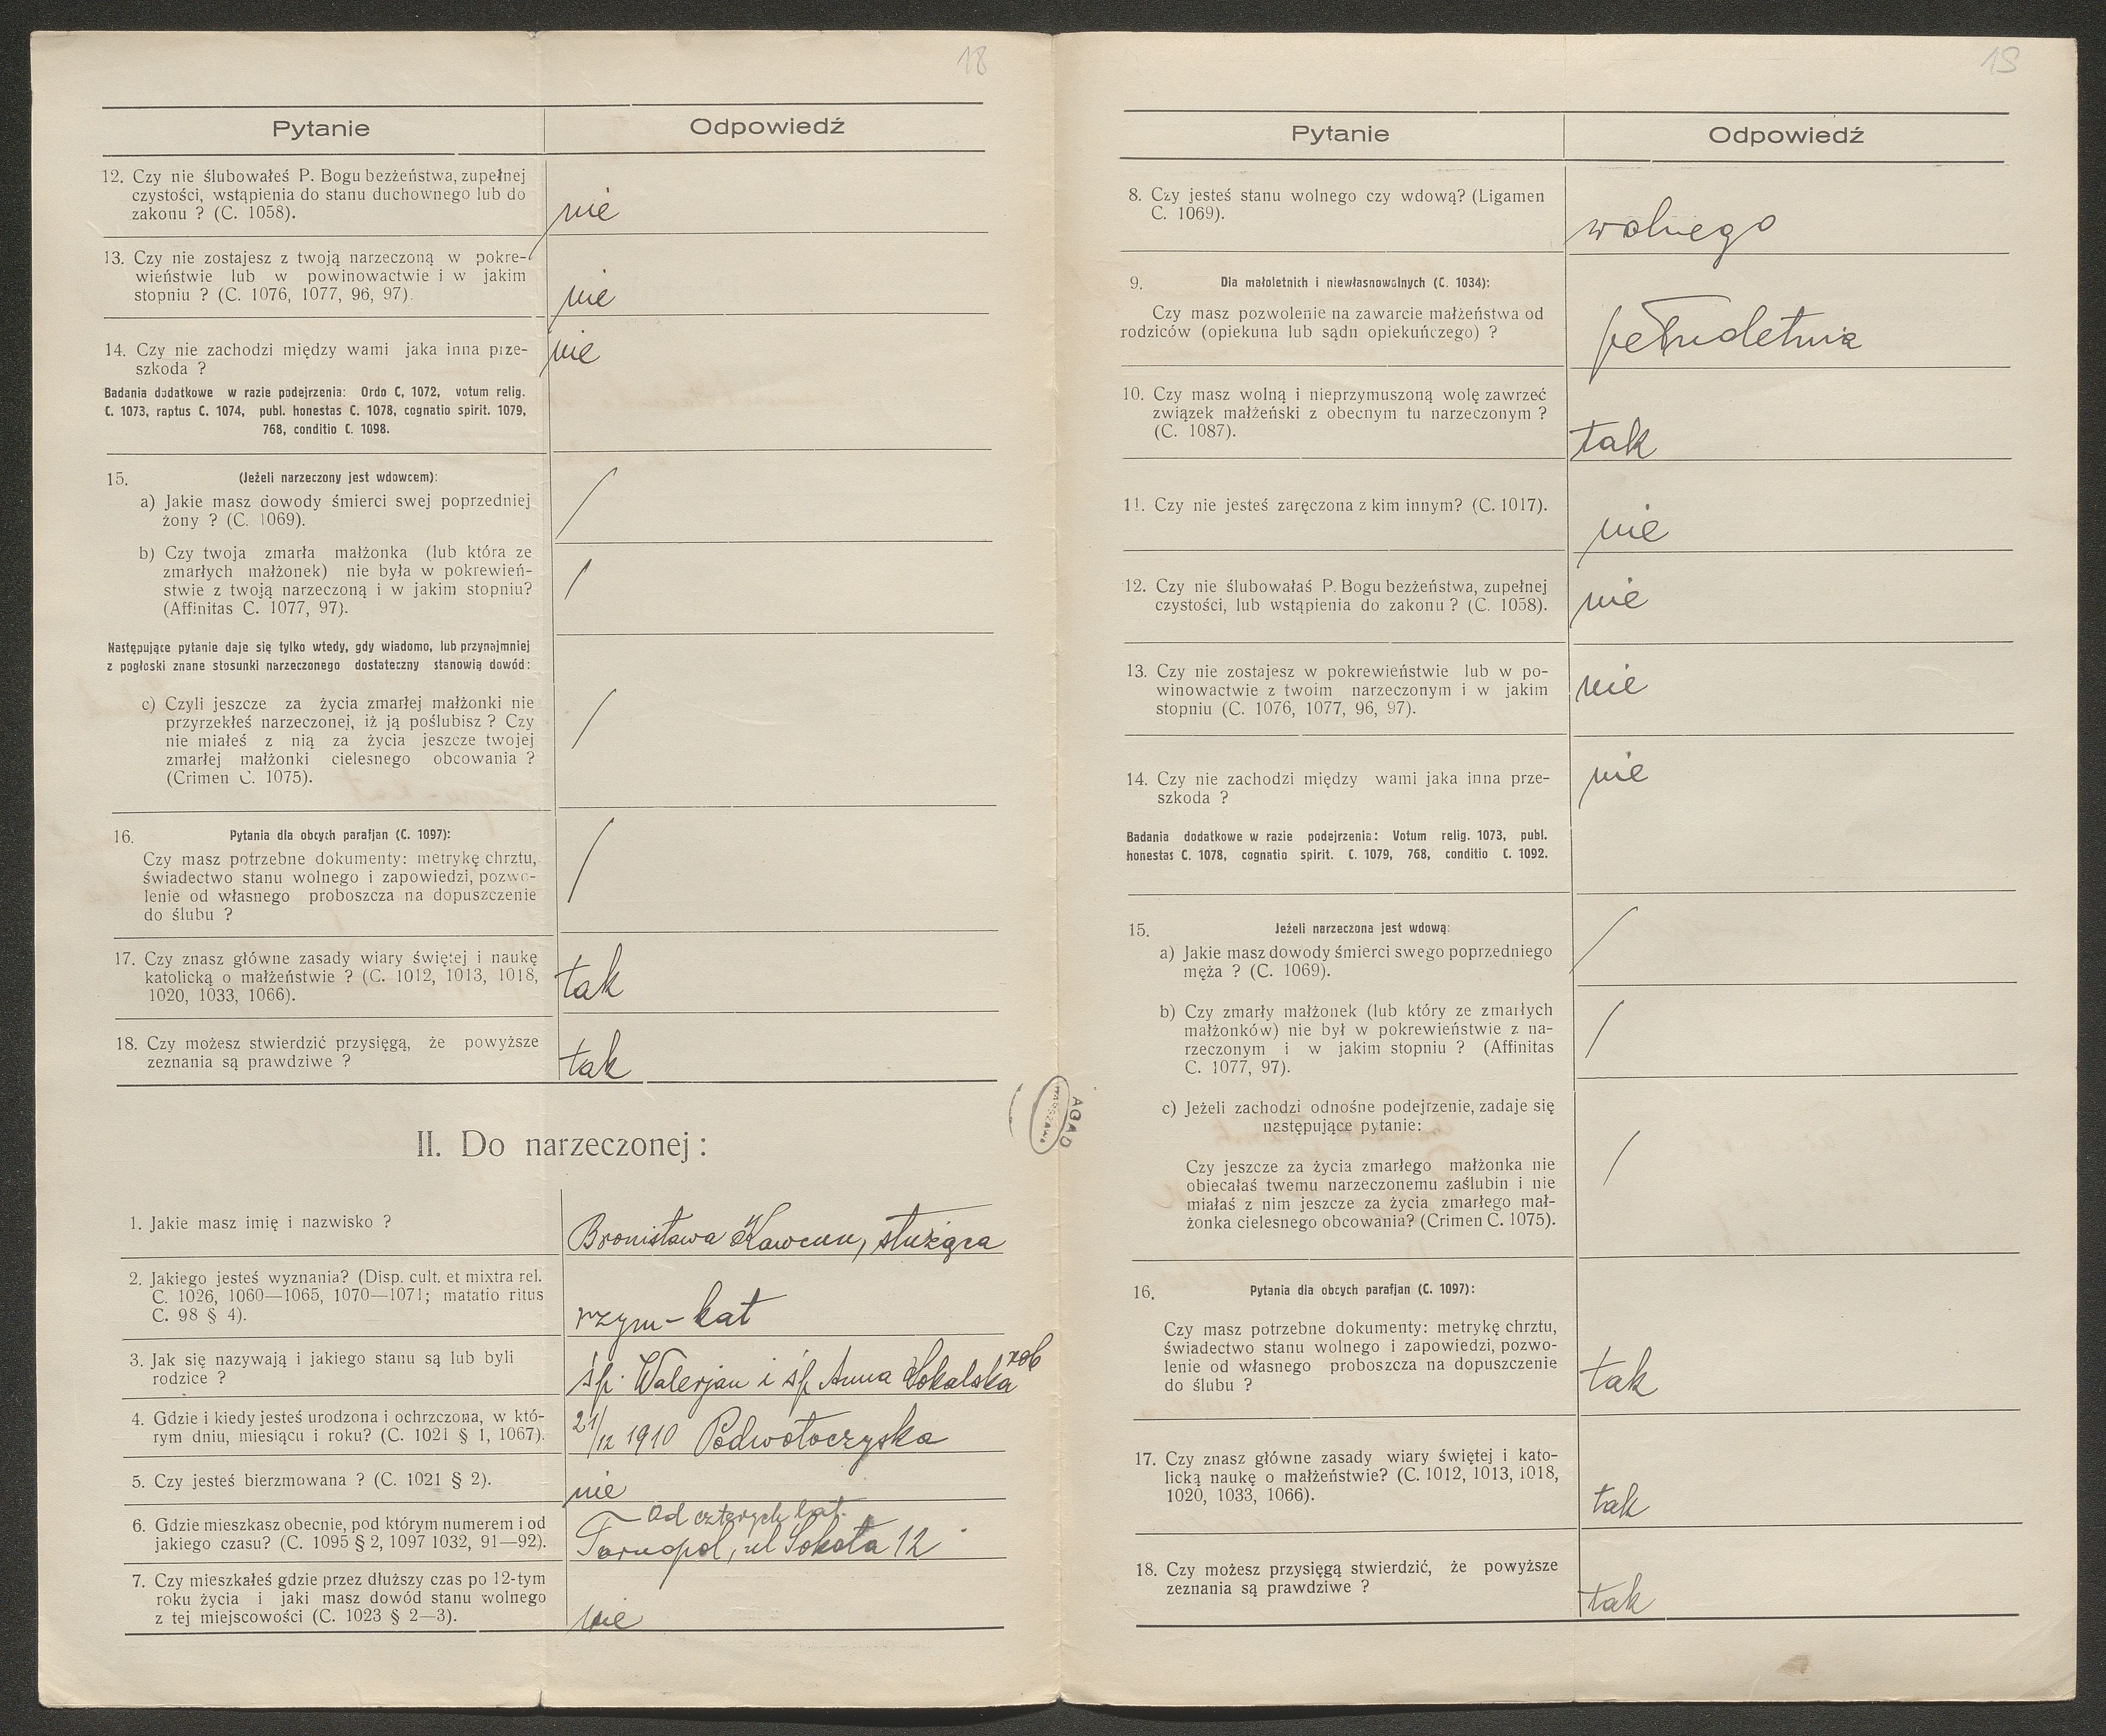 18
Pytanie
Odpowiedź
12. Czy nie ślubowałeś P. Bogu bezżeństwa, zupełnej
czystości, wstąpienia do stanu duchownego lub do
zakonu ? (C. 1058).
nie
13. Czy nie zostajesz z twoją narzeczoną w pokre-
wieństwie lub w powinowactwie i w jakim
stopniu ? (C. 1076, 1077, 96, 97).
nie
14. Czy nie zachodzi między wami jaka inna prze-
szkoda ?
nie
Badania dodatkowe w razie podejrzenia: Ordo C, 1072, votum relig.
C. 1073, raptus C. 1074, publ. honestas C. 1078, cognatio spirit. 1079,
768, conditio C. 1098.
15. (Jeżeli narzeczony jest wdowcem):
a) Jakie masz dowody śmierci swej poprzedniej
żony ? (C. 1069).
/
b) Czy twoja zmarła małżonka (lub która ze
zmarłych małżonek) nie była w pokrewień-
stwie z twoją narzeczoną i w jakim stopniu?
(Affinitas C. 1077, 97).
/
Następujące pytanie daje się tylko wtedy, gdy wiadomo, lub przynajmniej
z pogłoski znane stosunki narzeczonego dostateczny stanowią dowód:
c) Czyli jeszcze za życia zmarłej małżonki nie
przyrzekłeś narzeczonej, iż ją poślubisz ? Czy
nie miałeś z nią za życia jeszcze twojej
zmarłej małżonki cielesnego obcowania ?
(Crimen C. 1075).
/
16. Pytania dla obcych parafjan (C. 1097):
Czy masz potrzebne dokumenty: metrykę chrztu,
świadectwo stanu wolnego i zapowiedzi, pozwo-
lenie od własnego proboszcza na dopuszczenie
do ślubu ?
/
17. Czy znasz główne zasady wiary świętej i naukę
katolicką o małżeństwie ? (C. 1012, 1013, 1018,
1020, 1033, 1066).
tak
18. Czy możesz stwierdzić przysięgą, że powyższe
zeznania są prawdziwe ?
tak
II. Do narzeczonej :
1. Jakie masz imię i nazwisko ?
Bronisława Kawcun, służąca
2. Jakiego jesteś wyznania? (Disp. cult. et mixtra rel.
C. 1026, 1060—1065, 1070—1071; matatio ritus
C. 98 § 4).
rzym-kat
3. Jak się nazywają i jakiego stanu są lub byli
rodzice ?
śp. Walerjan i śp Anna Sokalska rob
4. Gdzie i kiedy jesteś urodzona i ochrzczona, w któ-
rym dniu, miesiącu i roku? (C. 1021 § 1, 1067).
21/12 1910 Podwołoczyska
5. Czy jesteś bierzmowana ? (C. 1021 § 2).
nie
6. Gdzie mieszkasz obecnie, pod którym numerem i od
jakiego czasu? (C. 1095 § 2, 1097 1032, 91—92).
od czterych lat.
Tarnopol, ul Sokoła 12
7. Czy mieszkałeś gdzie przez dłuższy czas po 12-tym
roku życia i jaki masz dowód stanu wolnego
z tej miejscowości (C. 1023 § 2—3).
nie
AGAD
WARSZAWA
19
Pytanie
Odpowiedź
8. Czy jesteś stanu wolnego czy wdową? (Ligamen
C. 1069).
wolnego
9. Dla małoletnich i niewłasnowolnych (C. 1034):
Czy masz pozwolenie na zawarcie małżeństwa od
rodziców (opiekuna lub sądn opiekuńczego) ?
pełnoletnia
10. Czy masz wolną i nieprzymuszoną wolę zawrzeć
związek małżeński z obecnym tu narzeczonym ?
(C. 1087).
tak
11. Czy nie jesteś zaręczona z kim innym? (C. 1017).
nie
12. Czy nie ślubowałaś P. Bogu bezżeństwa, zupełnej
czystości, lub wstąpienia do zakonu ? (C. 1058).
nie
13. Czy nie zostajesz w pokrewieństwie lub w po-
winowactwie z twoim narzeczonym i w jakim
stopniu (C. 1076, 1077, 96, 97).
nie
14. Czy nie zachodzi między wami jaka inna prze-
szkoda ?
nie
Badania dodatkowe w razie podejrzenia: Votum relig. 1073, publ.
honestas C. 1078, cognatio spirit. C. 1079, 768, conditio C. 1092.
15. Jeżeli narzeczona jest wdową:
a) Jakie masz dowody śmierci swego poprzedniego
męża ? (C. 1069).
/
b) Czy zmarły małżonek (lub który ze zmarłych
małżonków) nie był w pokrewieństwie z na-
rzeczonym i w jakim stopniu ? (Affinitas
C. 1077, 97).
/
c) Jeżeli zachodzi odnośne podejrzenie, zadaje się
następujące pytanie:
Czy jeszcze za życia zmarłego małżonka nie
obiecałaś twemu narzeczonemu zaślubin i nie
miałaś z nim jeszcze za życia zmarłego mał-
żonka cielesnego obcowania? (Crimen C. 1075).
/
16. Pytania dla obcych parafjan (C. 1097):
Czy masz potrzebne dokumenty: metrykę chrztu,
świadectwo stanu wolnego i zapowiedzi, pozwo-
lenie od własnego proboszcza na dopuszczenie
do ślubu ?
tak
17. Czy znasz główne zasady wiary świętej i kato-
licką naukę o małżeństwie? (C. 1012, 1013, 1018,
1020, 1033, 1066).
tak
18. Czy możesz przysięgą stwierdzić, że powyższe
zeznania są prawdziwe ?
tak